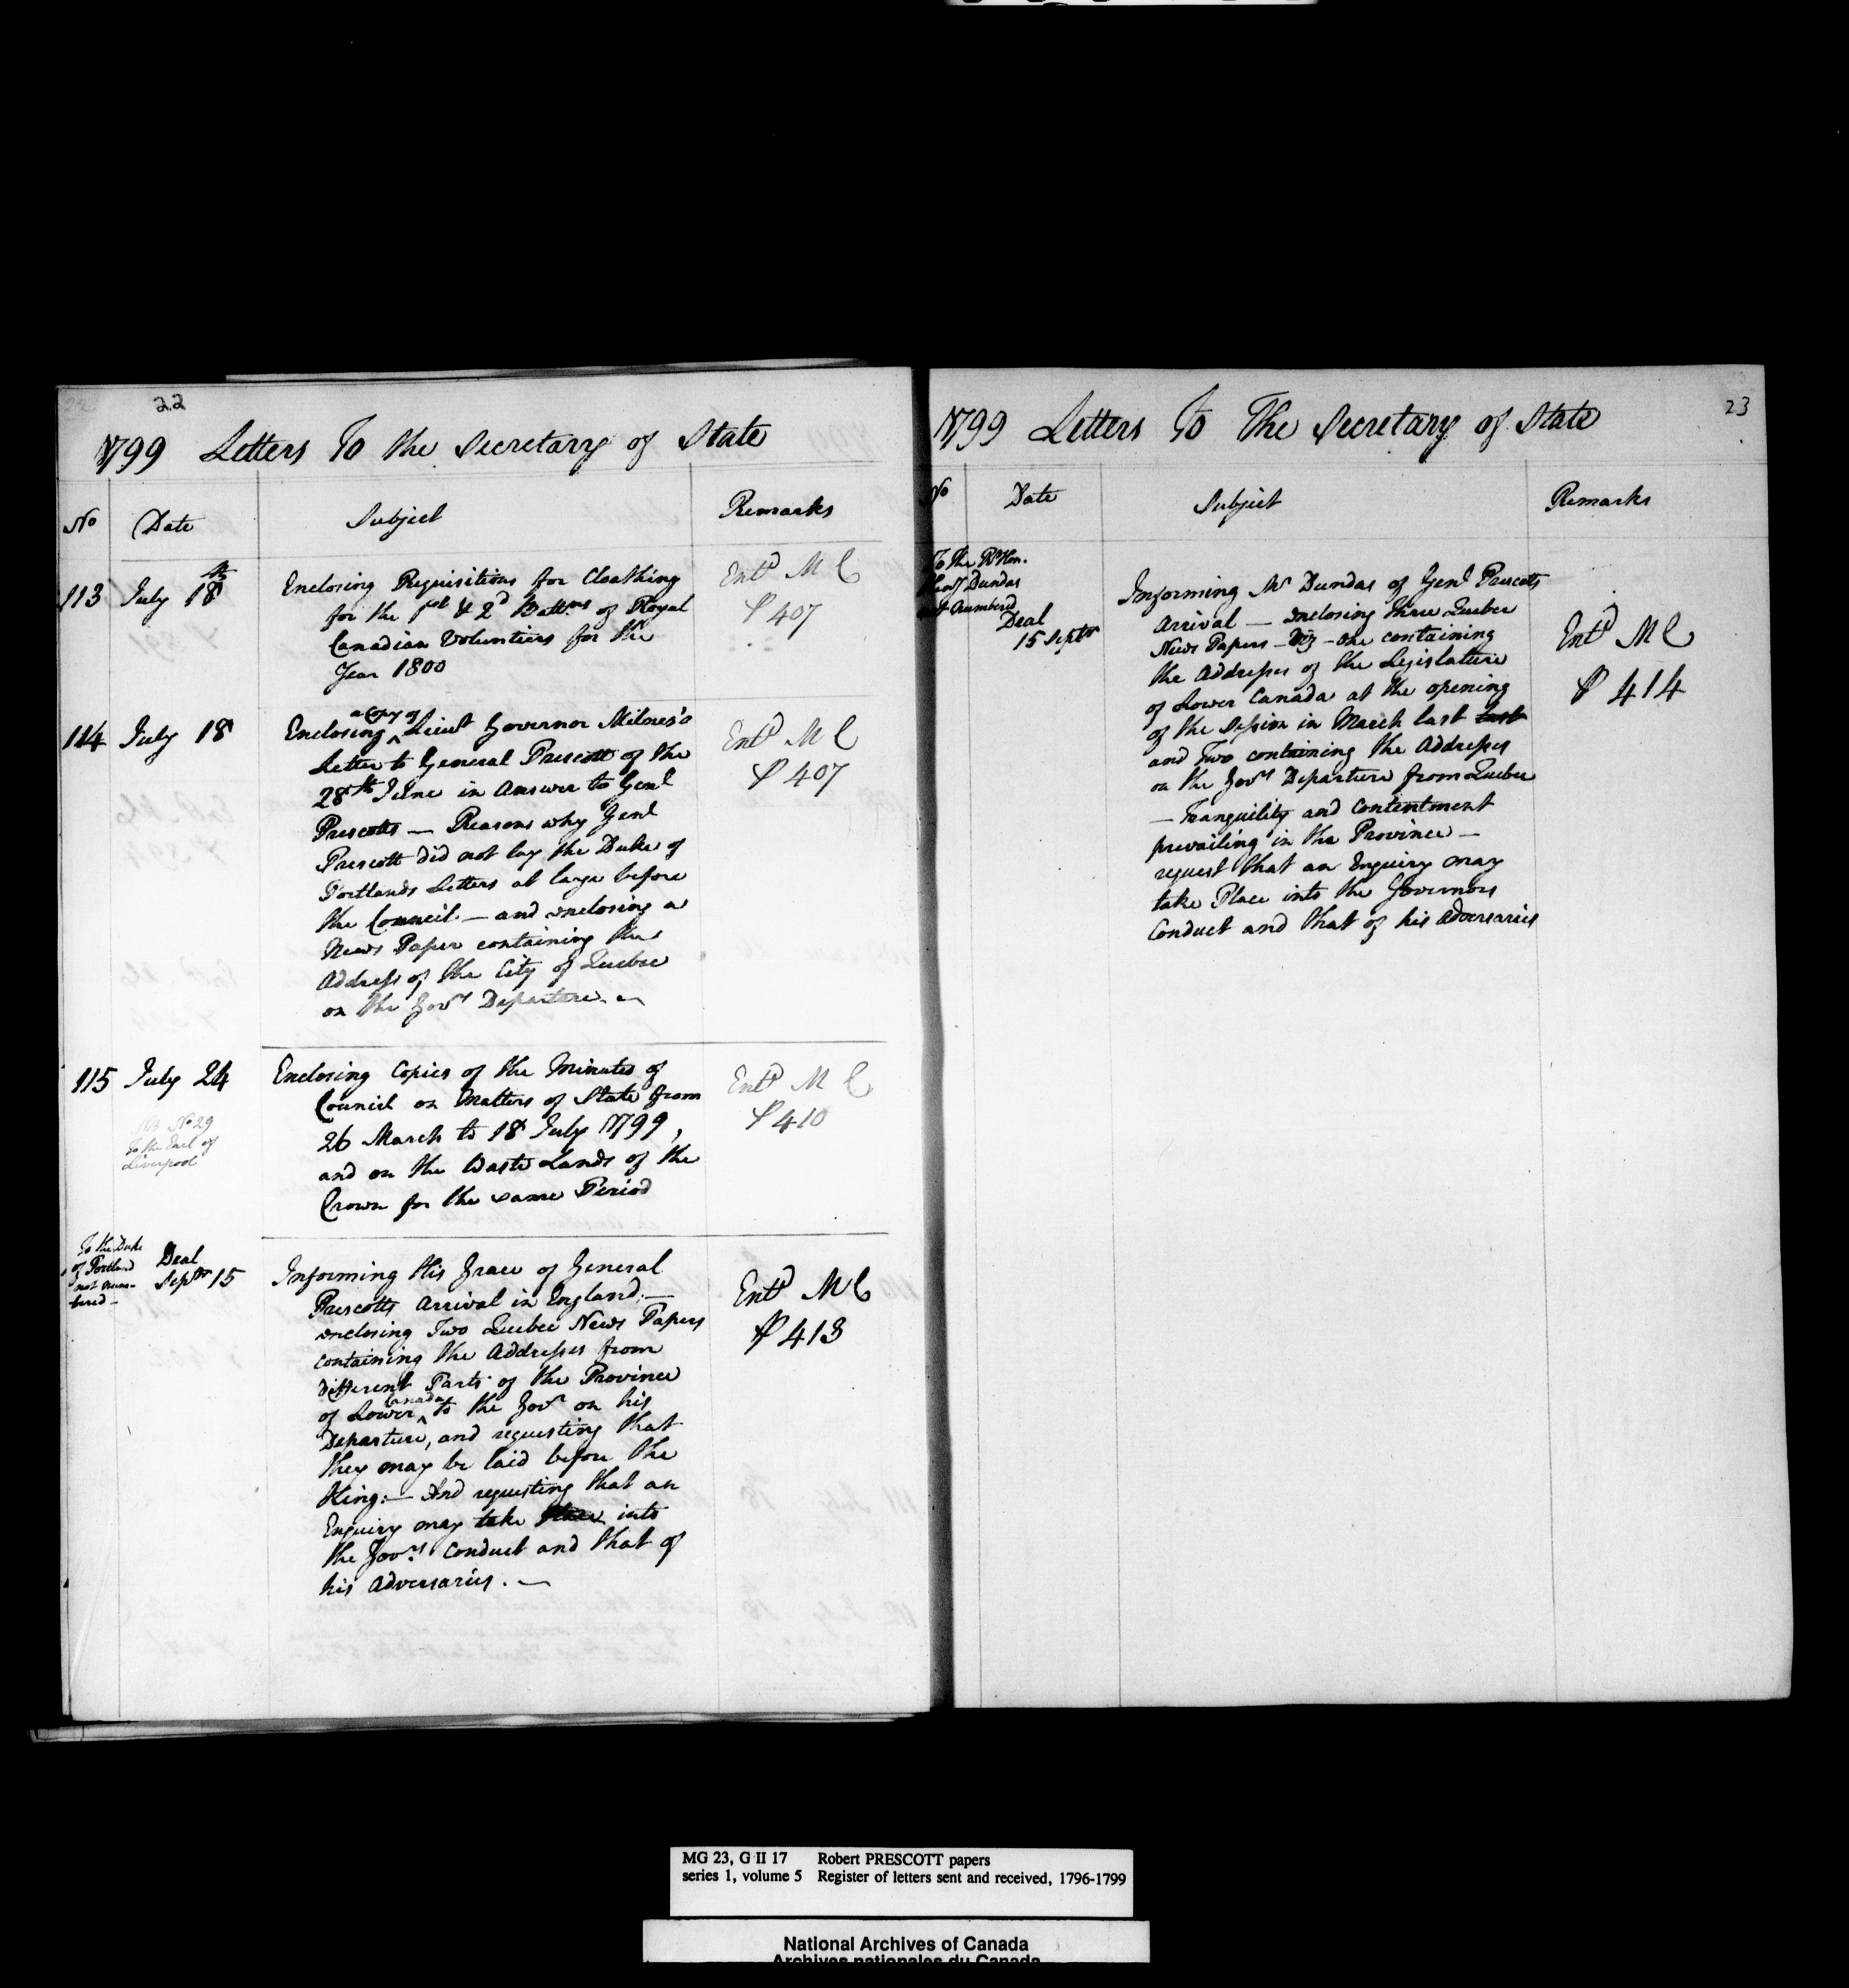 22
1799 Letters To the Secretary of State
No Date Subject Remarks
113 July 18th Enclosing Requisitions for Cloathing Entd M C
for the 1st & 2d Battns of Royal P 407
Canadian Voluntiers for the
Year 1800
114 July 18 Enclosing a Copy of Lieut Governor Milnes's Entd M C
Letter to General Prescott of the P 407
28th June in answer to Genl
Prescotts — Reasons why Genl
Prescott did not lay the Duke of
Portlands Letters at large before
the Council — and enclosing a
News Paper containing the
Address of the City of Quebec
on the Govrs Departure. —
115 July 24 Enclosing Copies of the Minutes of Entd M C
Council on Matters of State from P 410
26 March to 18 July 1799,
and on the Waste Lands of the
Crown for the same Period
No 29
To the Earl of
Liverpool
To the Duke
of Portland
not num-
bered —
Deal
Septr 15
Informing His Grace of General Entd M C
Prescotts Arrival in England:— P 413
enclosing Two Quebec News Papers
containing the Addresses from
different Parts of the Province
of Lower Canada to the Govr on his
Departure, and requesting that
they may be laid before the
King:— And requesting that an
Enquiry may take Place into
the Govrs Conduct and that of
his Adversaries. —
23
1799 Letters To The Secretary of State
No Date Subject Remarks
To the Rt Hon.
Henry Dundas
not numbered
Deal
15 Septr
Informing Mr Dundas of Genl Prescotts
Arrival — enclosing three Quebec
News Papers — Viz — one containing Entd M C
the Addresses of the Legislature
of Lower Canada at the opening P 414
of the Session in March last last
and Two containing the Addresses
on the Govrs Departure from Quebec
— Tranquility and Contentment
prevailing in the Province —
request that an Enquiry may
take Place into the Governors
Conduct and that of his Adversaries
MG 23, G II 17 Robert PRESCOTT papers
series 1, volume 5 Register of letters sent and received, 1796-1799
National Archives of Canada
Archives nationales du Canada